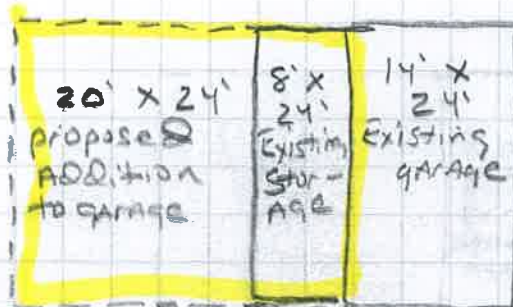 20' x 24'
proposed
Addition
to garage
8' x
24'
Existing
Stor-
Age
14' x
24'
Existing
garage